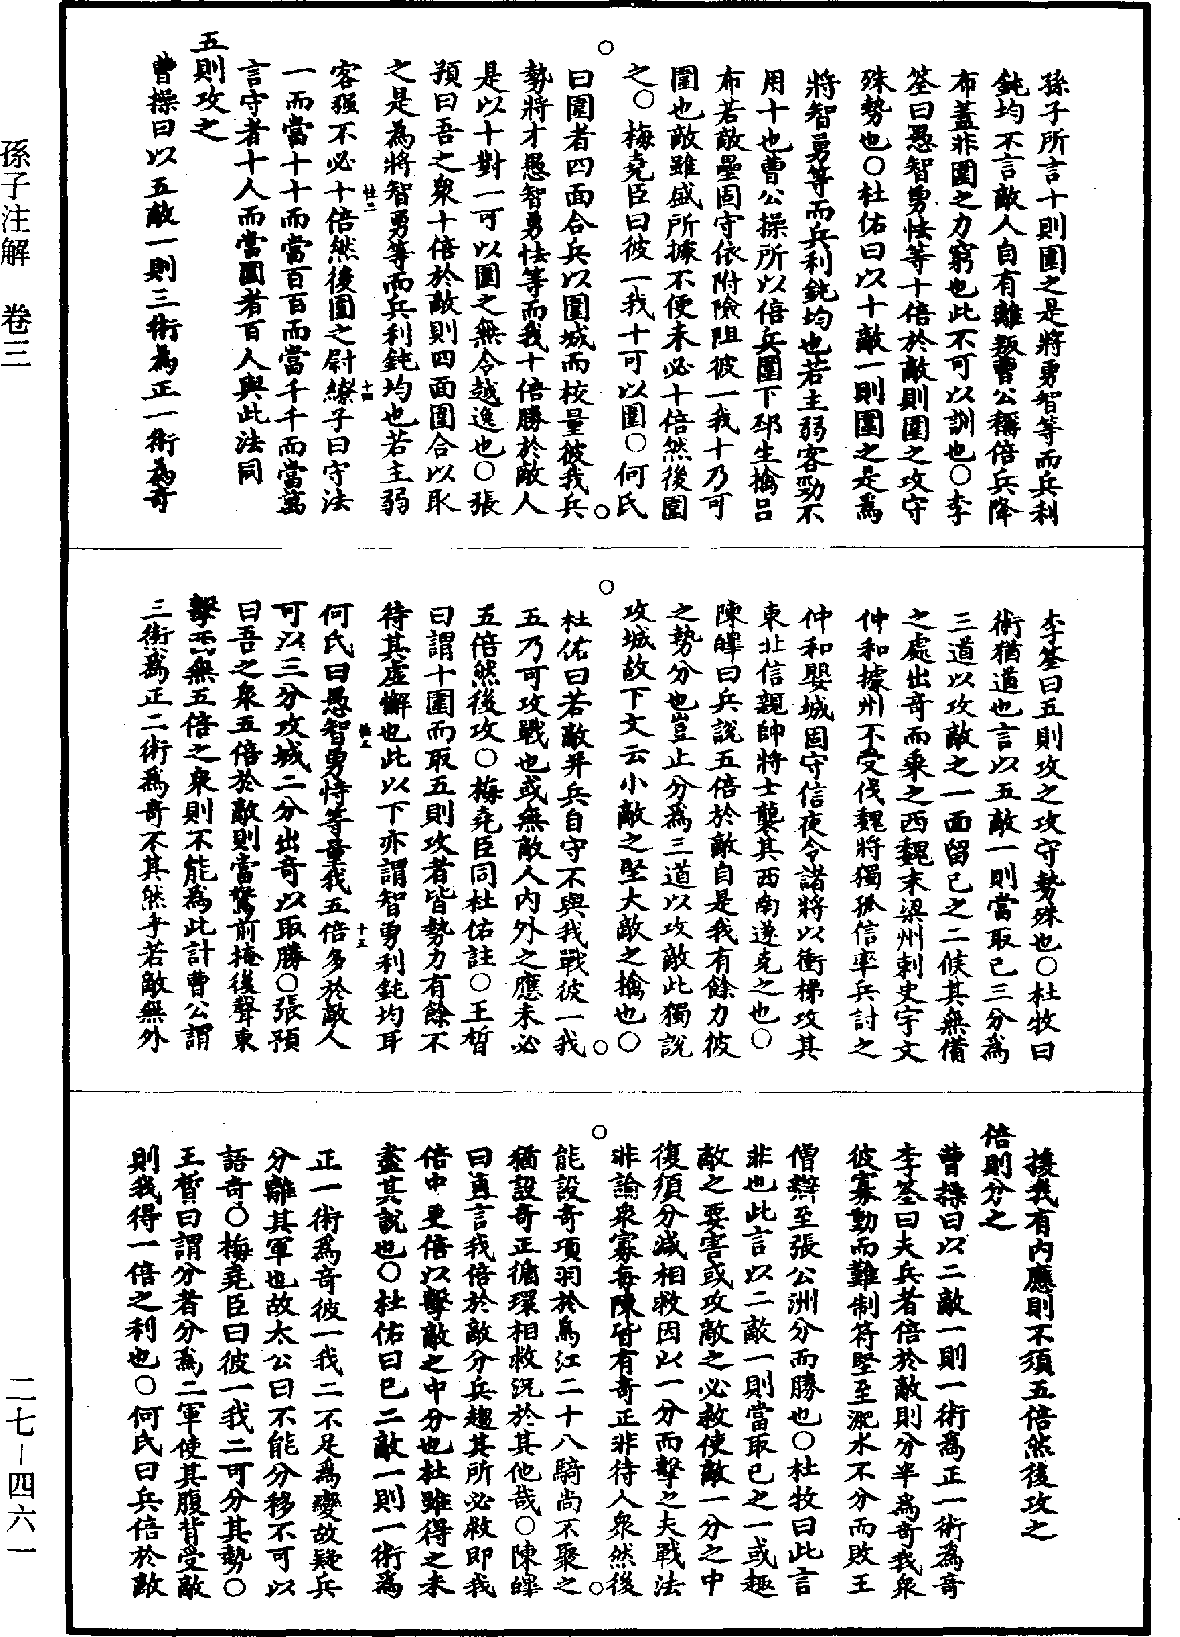 孫子注解 卷三
二七－四六一
孫子所言十則圍之是將勇智等而兵利
鈍均不言敵人自有離叛曹公稱倍兵降
布蓋非圍之力窮也此不可以訓也○李
筌曰愚智勇怯等十倍於敵則圍之攻守
殊勢也○杜佑曰以十敵一則圍之是為
將智勇等而兵利鈍均也若主弱客勁不
用十也曹公操所以倍兵圍下邳生擒呂
布若敵壘固守依附險阻彼一我十乃可
圍也敵雖盛所據不便未必十倍然後圍
之○梅堯臣曰彼一我十可以圍○何氏
曰圍者四面合兵以圍城而校量彼我兵
勢將才愚智勇怯等而我十倍勝於敵人
是以十對一可以圍之無令越逸也○張
預曰吾之眾十倍於敵則四面圍合以取
之是為將智勇等而兵利鈍均也若主弱
客强不必十倍然後圍之尉繚子曰守法
一而當十十而當百百而當千千而當萬
言守者十人而當圍者百人與此法同
五則攻之
曹操曰以五敵一則三術為正一術為奇
李筌曰五則攻之攻守勢殊也○杜牧曰
術猶道也言以五敵一則當取己三分為
三道以攻敵之一面留己之二候其無備
之處出奇而乘之西魏末梁州刺史宇文
仲和據州不受伐魏將獨孤信率兵討之
仲和嬰城固守信夜令諸將以衝梯攻其
東北信親帥將士襲其西南遂克之也○
陳皥曰兵說五倍於敵自是我有餘力彼
之勢分也豈止分為三道以攻敵此獨說
攻城故下文云小敵之堅大敵之擒也○
杜佑曰若敵并兵自守不與我戰彼一我
五乃可攻戰也或無敵人內外之應未必
五倍然後攻○梅堯臣同杜佑註○王晳
曰謂十圍而取五則攻者皆勢力有餘不
待其虛懈也此以下亦謂智勇利鈍均耳
何氏曰愚智勇怯等量我五倍多於敵人
可以三分攻城二分出奇以取勝○張預
曰吾之眾五倍於敵則當驚前掩後聲東
擊西無五倍之眾則不能為此計曹公謂
三術為正二術為奇不其然乎若敵無外
援我有內應則不須五倍然後攻之
倍則分之
曹操曰以二敵一則一術為正一術為奇
李筌曰夫兵者倍於敵則分半為奇我眾
彼寡動而難制苻堅至淝水不分而敗王
僧辯至張公洲分而勝也○杜牧曰此言
非也此言以二敵一則當取己之一或趣
敵之要害或攻敵之必救使敵一分之中
復須分減相救因以一分而擊之夫戰法
非論眾寡每陳皆有奇正非待人眾然後
能設奇項羽於烏江二十八騎尚不聚之
猶設奇正循環相救況於其他哉○陳皥
曰直言我倍於敵分兵趨其所必救即我
倍中更倍以擊敵之中分也杜雖得之未
盡其說也○杜佑曰己二敵一則一術為
正一術為奇彼一我二不足為變故疑兵
分離其軍也故太公曰不能分移不可以
語奇○梅堯臣曰彼一我二可分其勢○
王晳曰謂分者分為二軍使其腹背受敵
則我得一倍之利也○何氏曰兵倍於敵